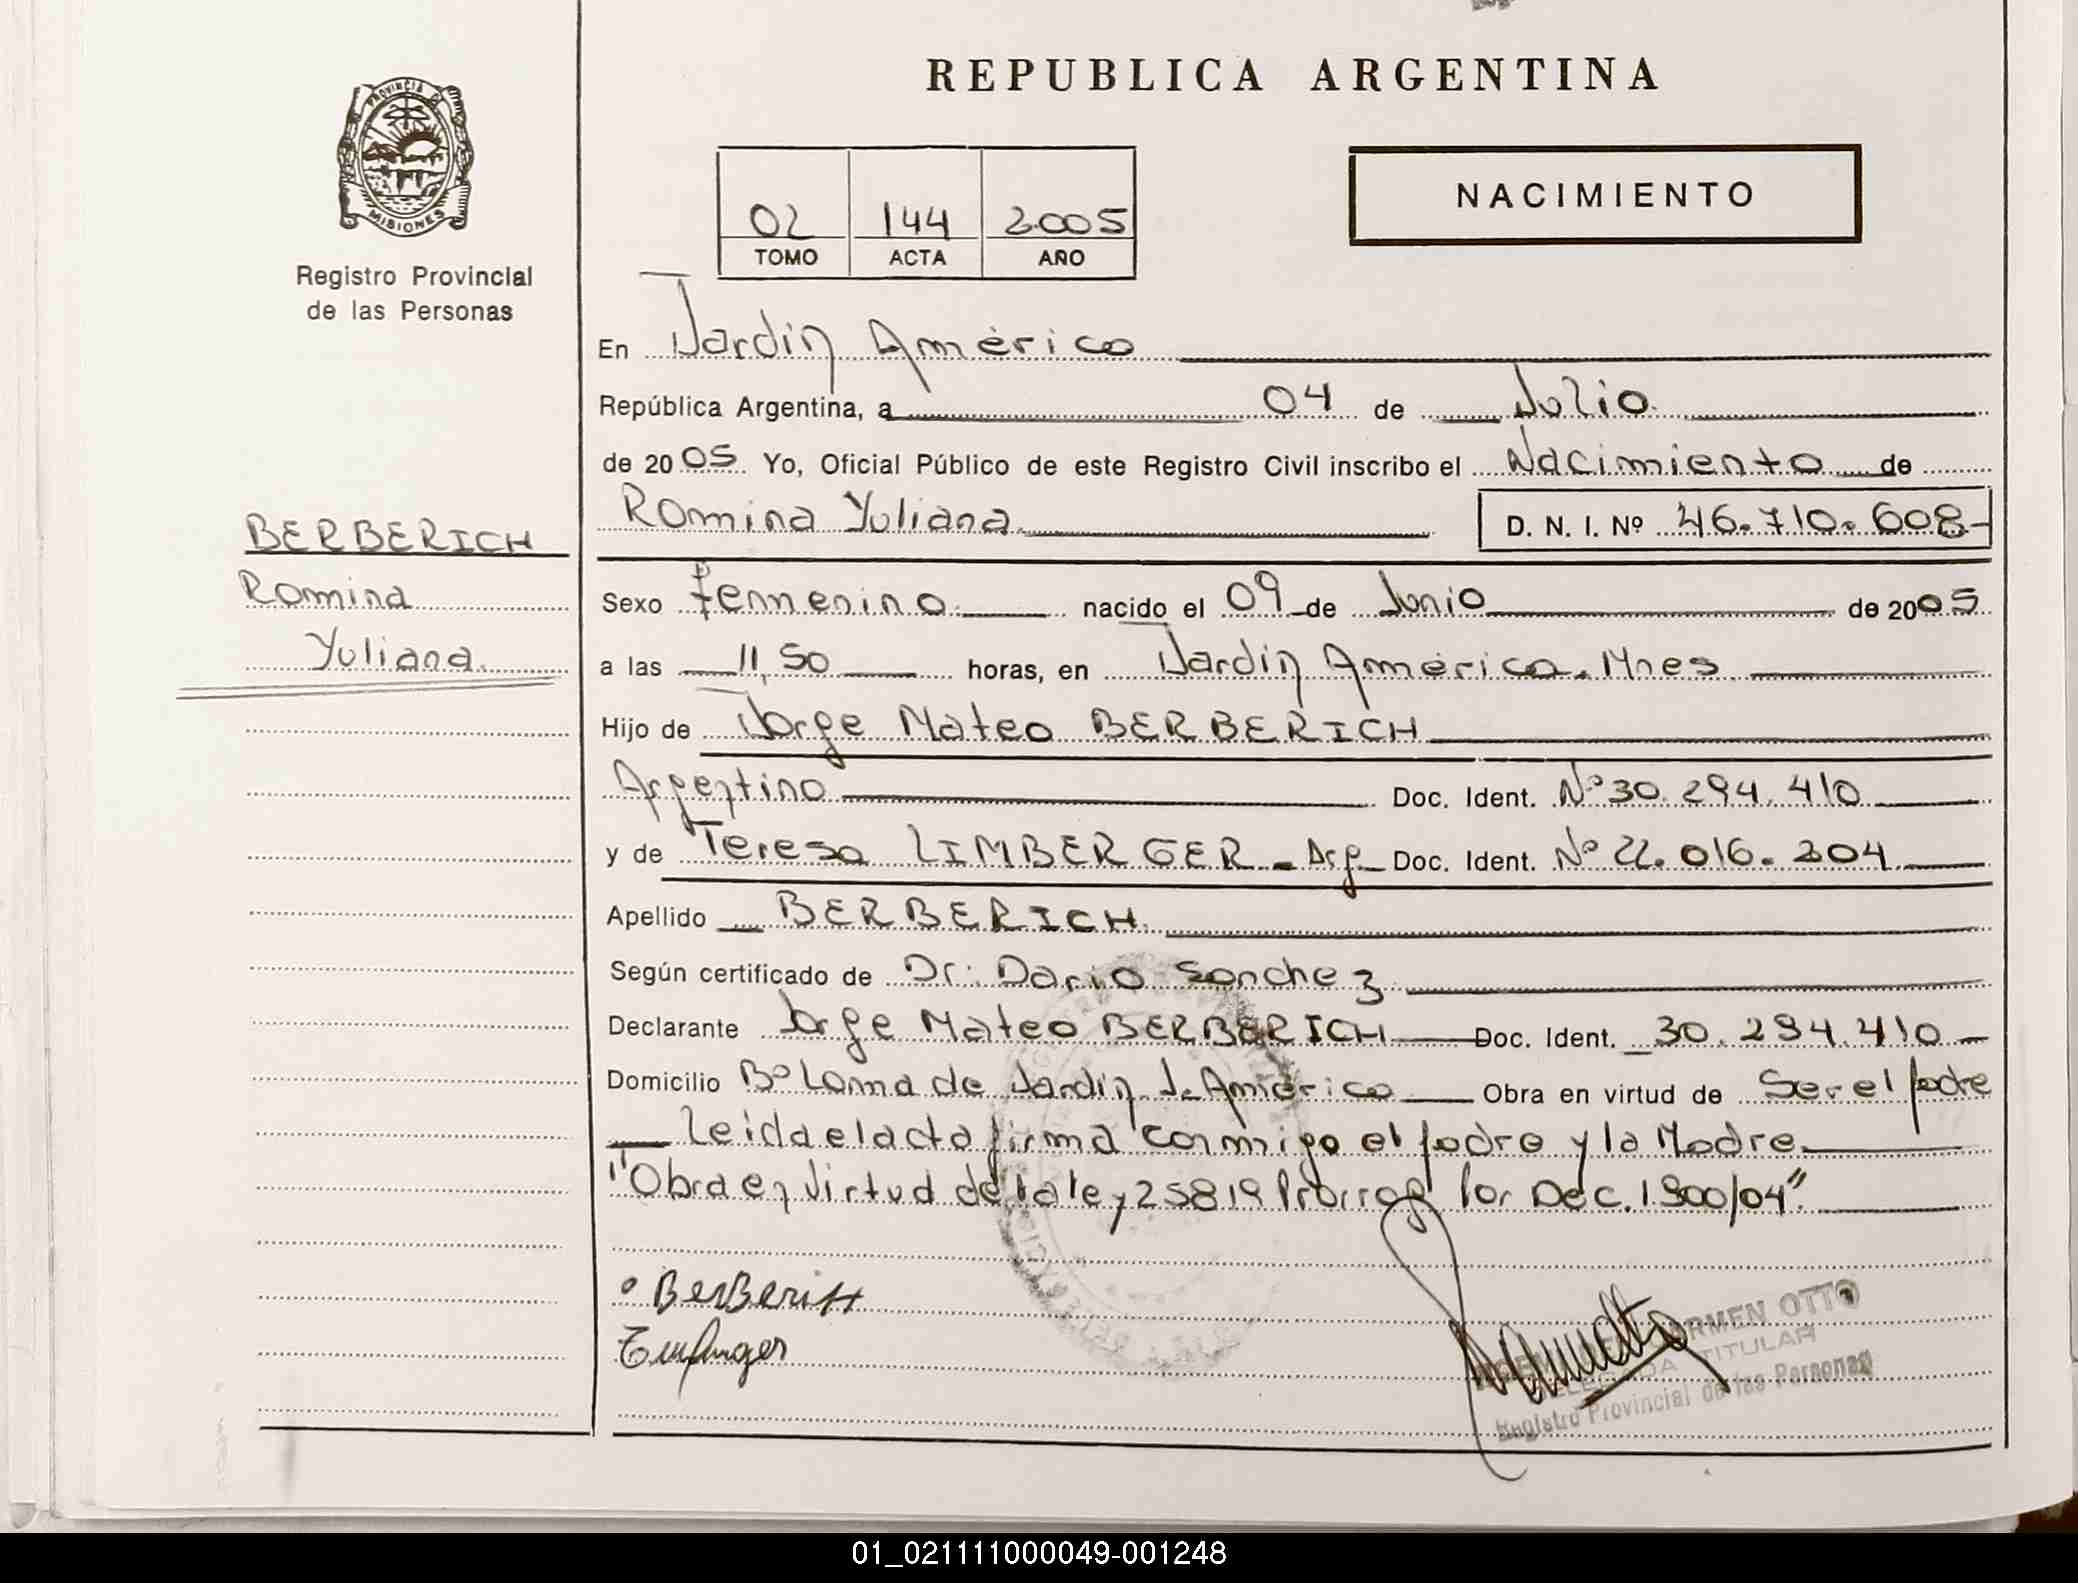 REPUBLICA ARGENTINA
PROVINCIA DE
MISIONES
Registro Provincial
de las Personas
02 144 2005
TOMO ACTA AÑO
NACIMIENTO
En Jardín América
República Argentina, a 04 de Julio
de 2005 Yo, Oficial Público de este Registro Civil inscribo el Nacimiento de
Romina Yuliana D. N. I. Nº 46.710.608
BERBERICH
Romina
Yuliana
Sexo femenino nacido el 09 de Junio de 2005
a las 11,50 horas, en Jardín América. Mnes
Hijo de Jorge Mateo BERBERICH
Argentino Doc. Ident. Nº 30.294.410
y de Teresa LIMBERGER - Arg Doc. Ident. Nº 22.016.204
Apellido BERBERICH
Según certificado de Dr. Dario Sanchez
Declarante Jorge Mateo BERBERICH Doc. Ident. 30.294.410
Domicilio Bº Loma de Jardín J. América Obra en virtud de Ser el padre
Leida el acta firma conmigo el padre y la Madre
"Obra en virtud de la ley 25819 Prorrog por Dec. 1900/04".
BerBerich
CARMEN OTTO
DELEGADA TITULAR
Registro Provincial de las Personas
01_021111000049-001248